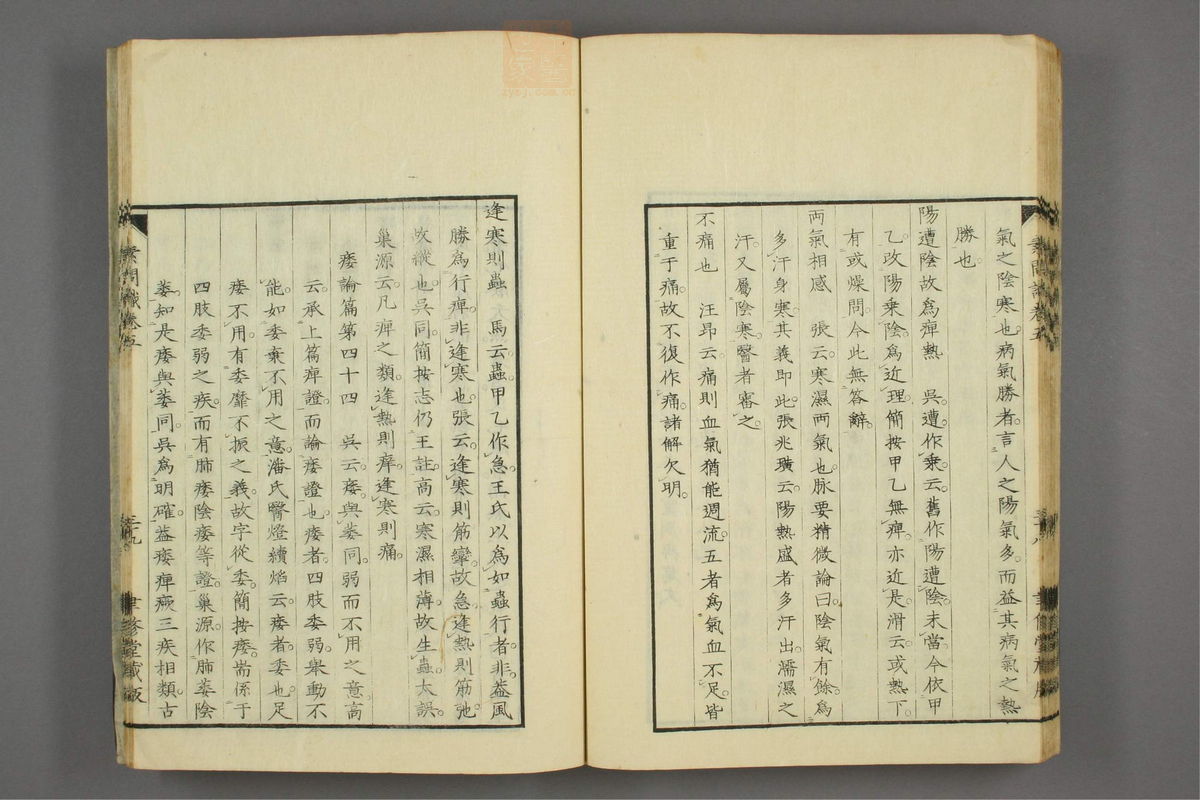 氣之陰寒也。病氣勝者。言人之陽氣多。而益其病氣之熱
勝也。
陽遭陰故爲痺熱　吳遭作乘。云。舊作陽遭陰。未當。今依甲
乙改陽乘陰。爲近理。簡按甲乙無痺。亦近是。滑云。或熱下。
有或燥問。今此無答辭。
兩氣相感　張云。寒濕兩氣也。脉要精微論曰。陰氣有餘。爲
多汗身寒。其義即此。張兆璜云。陽熱盛者多汗出。濡濕之
汗。又屬陰寒。醫者審之。
不痛也　汪昂云。痛則血氣猶能週流。五者爲氣血不足。皆
重于痛。故不復作痛。諸解欠明。
逢寒則蟲　馬云。蟲甲乙作急。王氏以爲如蟲行者非。蓋風
勝爲行痺。非逢寒也。張云。逢寒則筋攣。故急。逢熱則筋弛。
故縱也。吳同。簡按志仍王註。高云。寒濕相薄。故生蟲。太誤。
巢源云。凡痺之類。逢熱則痒。逢寒則痛。
痿論篇第四十四　吳云。痿與萎同。弱而不用之意。高
云。承上篇痺證。而論痿證也。痿者。四肢委弱。舉動不
能。如委棄不用之意。潘氏醫燈續焰云。痿者。委也。足
痿不用。有委靡不振之義。故字從委。簡按痿耑係于
四肢委弱之疾。而有肺痿陰痿等證。巢源。作肺萎陰
萎。知是痿與萎同。吳爲明確。蓋痿痺瘚三疾相類。古
素問識卷五
三十九
聿修堂藏版